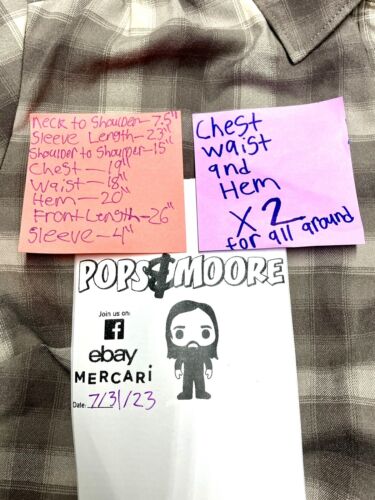 Neck to Shoulder-7.5"
Sleeve Length-23"
Shoulder to Shoulder-15"
Chest-19"
Waist-18"
Hem-20"
Front Length-26"
Sleeve-4"
Chest
Waist
and
Hem
X2
for all around
POPS & MOORE
Join us on:
f
ebay
MERCARI
Date: 7/31/23